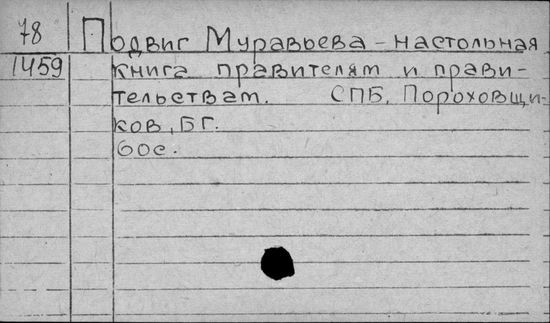 78 Подвиг Муравьева - настольная
1459 книга правителям и прави-
тельствам. СПБ, Пороховщи-
ков, БГ.
60с.